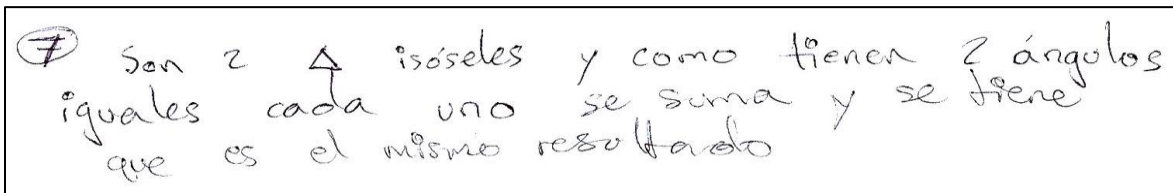 ⑦ Son 2 △ isóseles y como tienen 2 ángulos
iguales cada uno se suma y se tiene
que es el mismo resultado